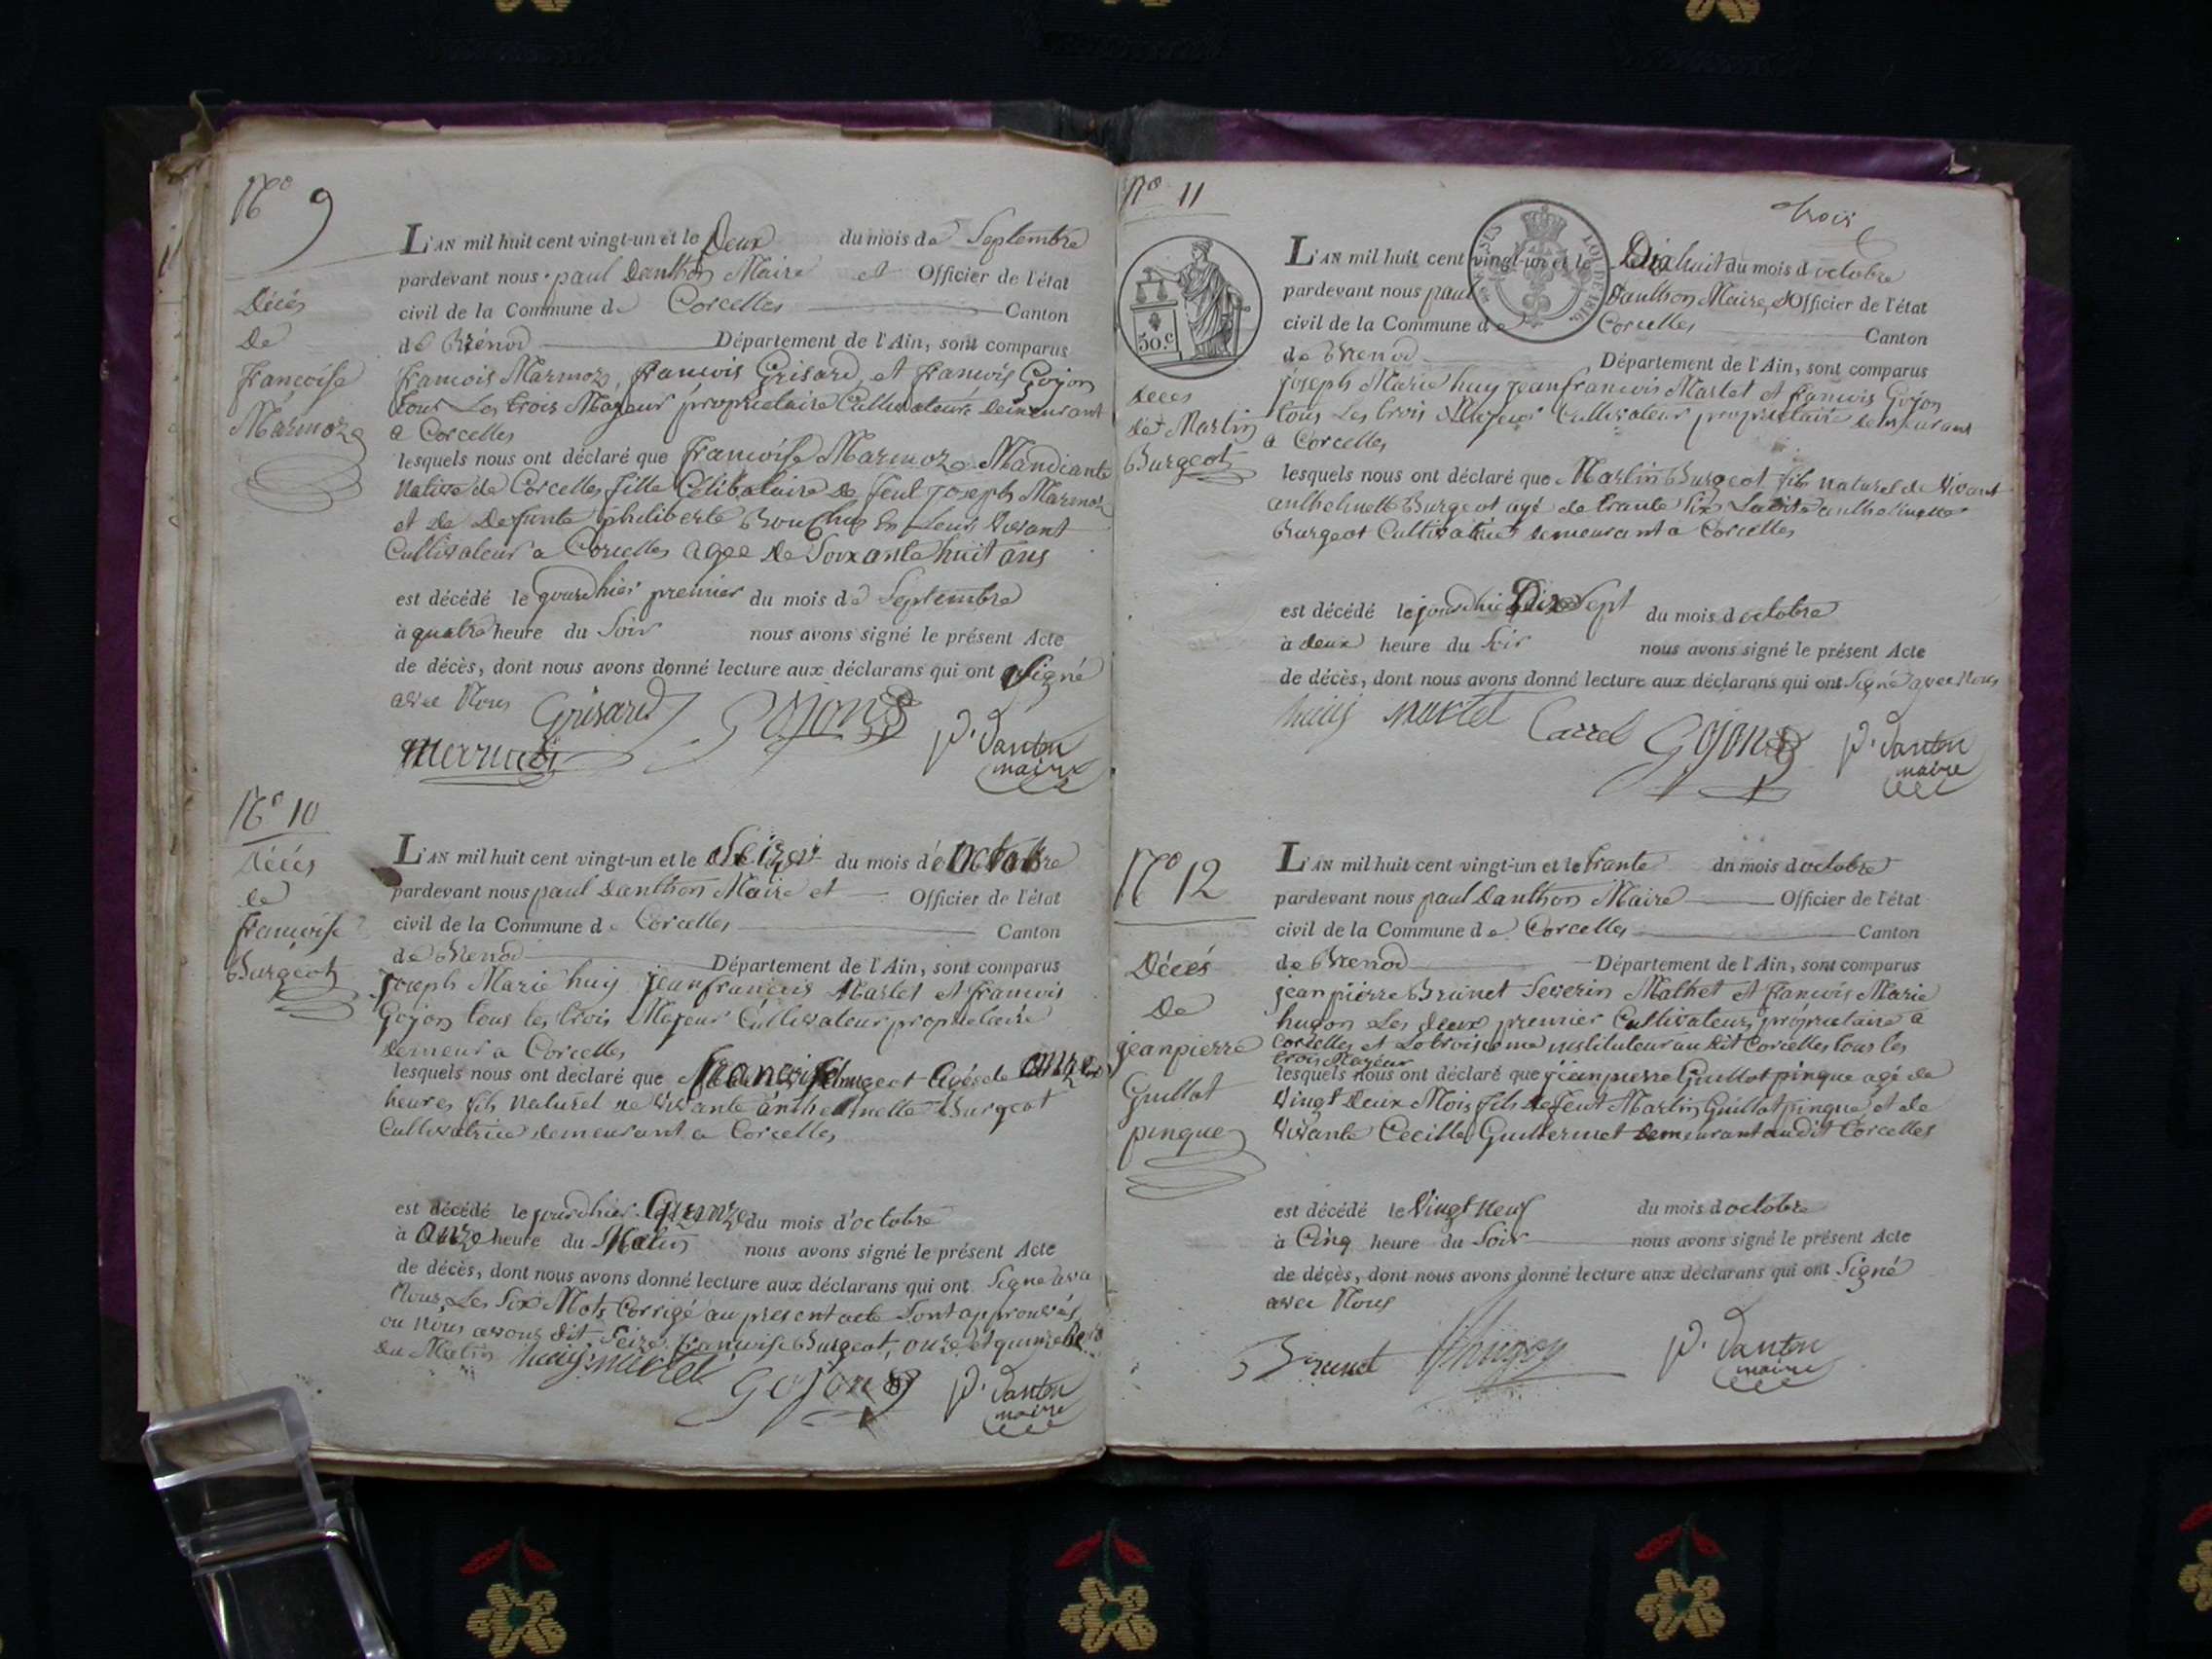 N.o 9
Décés
De
francoise
Marmoz
L'AN mil huit cent vingt-un et le Deux du mois de Septembre
pardevant nous paul Danthon Maire et Officier de l'état
civil de la Commune de Corcelles Canton
de Brénod Département de l'Ain, sont comparus
francois Marmoz, francois Grisard, et francois Gojon
tous Les trois Majeur propriétaire Cultivateur Demeurant
a Corcelles
lesquels nous ont déclaré que francoise Marmoz Mandiante
Native de Corcelles fille Célibataire de feut joseph Marmoz
et de Defunte philiberte En Leur Vivant
Cultivateur a Corcelles agee de Soixante huit ans
est décédé le jourdhier premier du mois de Septembre
à quatre heure du Soir nous avons signé le présent Acte
de décès, dont nous avons donné lecture aux déclarans qui ont Signé
avec Nous Grisard Gojon P. Danton
maire
N.o 10
Décés
de
francoise
Burgeot
L'AN mil huit cent vingt-un et le Seize du mois d'octobre
pardevant nous paul Danthon Maire et Officier de l'état
civil de la Commune de Corcelles Canton
de Brenod Département de l'Ain, sont comparus
joseph Marie huy jean francois Martet et francois
Gojon tous les trois Majeur Cultivateur propriétaire
demeur a Corcelles
lesquels nous ont déclaré que francoise Burgeot Agés de onze
heures fils Naturel de Vivante anthelmette Burgeot
Cultivatrice demeurant a Corcelles
est décédé le jourdhier Quinze du mois d'octobre
à Onze heure du Matin nous avons signé le présent Acte
de décès, dont nous avons donné lecture aux déclarans qui ont Signe avec
Nous, Les Six Mots Corrigé au present acte Sont approuvés
ou Nous avons dit Seize francoise Burgeot, onze et quinze
du Matin huy martet
Gojon P. Danton
maire
N.o 11
trois
50.c
deces
de Martin
Burgeot
L'AN mil huit cent vingt-un et le Dix huit du mois d octobre
pardevant nous paul Danthon Maire, Officier de l'état
civil de la Commune de Corcelles Canton
de Brenod Département de l'Ain, sont comparus
joseph Marie huy jean francois Martet et francois Gojon
tous Les trois Majeur Cultivateur propriétaire demeurant
a Corcelles
lesquels nous ont déclaré que Martin Burgeot fils Naturel de Vivant
anthelmette Burgeot agé de trante Six Ladite anthelmette
Burgeot Cultivatrice demeurant a Corcelles
est décédé le jourdhie Dix Sept du mois d octobre
à deux heure du Soir nous avons signé le présent Acte
de décès, dont nous avons donné lecture aux déclarans qui ont Signé avec Nous
huy martet Carrel Gojon P. Danton
maire
N.o 12
Décés
De
jeanpierre
Guillot
pinque
L'AN mil huit cent vingt-un et le trante du mois d octobre
pardevant nous paul Danthon Maire Officier de l'état
civil de la Commune de Corcelles Canton
de Brenod Département de l'Ain, sont comparus
jean pierre Brunet Severin Mathet et francois Marie
hugon Les deux premier Cultivateur propriétaire a
Corcelles et Le troisieme instituteur au dit Corcelles tous les
trois Majeur
lesquels nous ont déclaré que jeanpierre Guillot pinque agé de
Vingt Deux Mois fils de feut Martin Guillot pinque, et de
Vivante Cecille Guillermet demeurant audit Corcelles
est décédé le Vingt Neuf du mois d octobre
à Cinq heure du Soir nous avons signé le présent Acte
de décès, dont nous avons donné lecture aux déclarans qui ont Signé
avec Nous
Brunet hugon P. Danton
maire